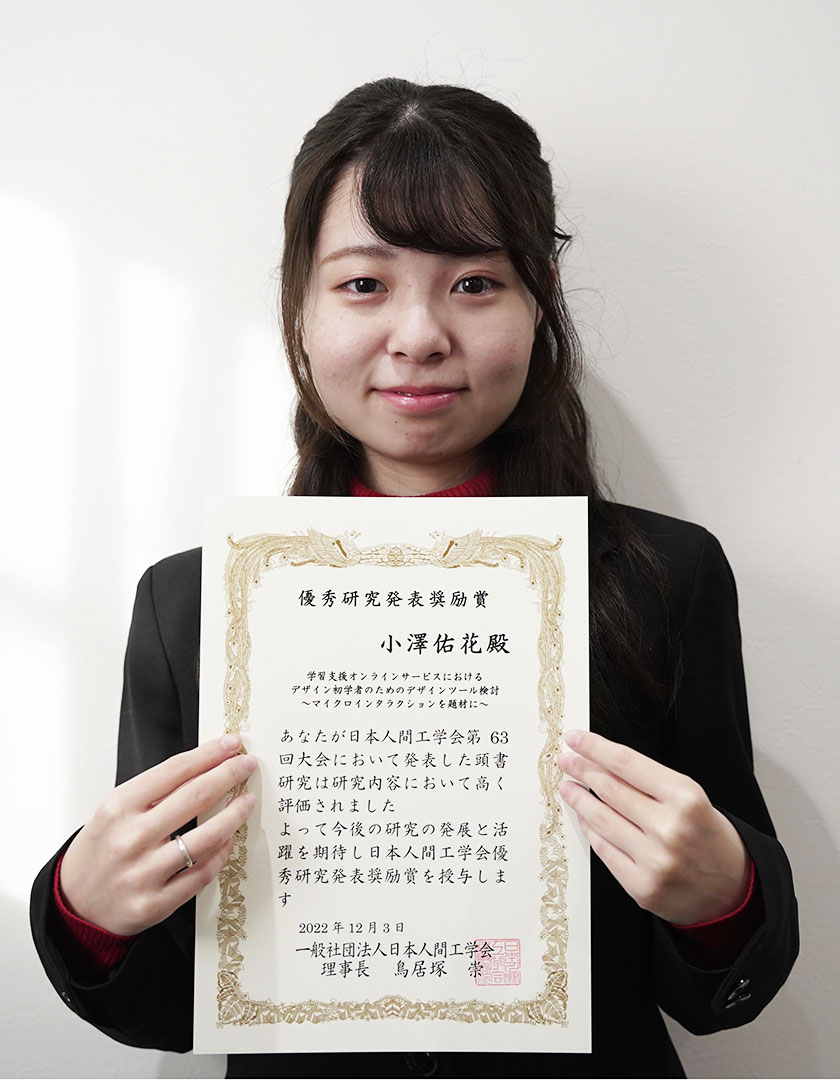 優秀研究発表奨励賞
小澤佑花殿
学習支援オンラインサービスにおける
デザイン初学者のためのデザインツール検討
〜マイクロインタラクションを題材に〜
あなたが日本人間工学会第 63
回大会において発表した頭書
研究は研究内容において高く
評価されました
よって今後の研究の発展と活
躍を期待し日本人間工学会優
秀研究発表奨励賞を授与しま
す
2022年12月3日
一般社団法人日本人間工学会
理事長 鳥居塚 崇